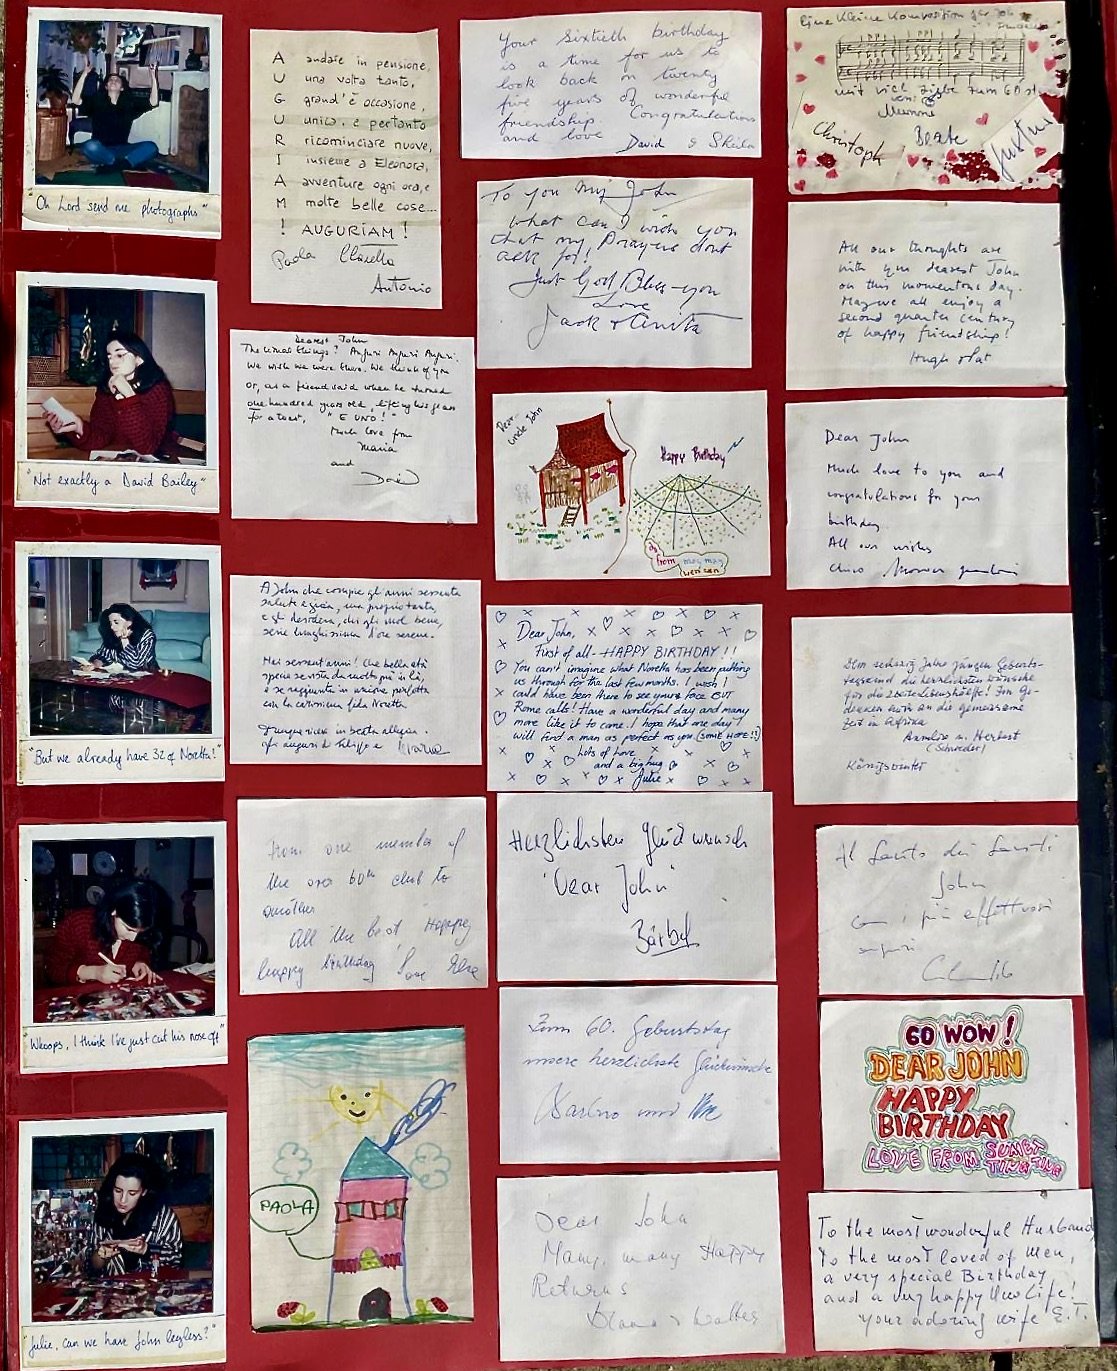 "Oh Lord send me photographs"
"Not exactly a David Bailey"
"But we already have 32 of Noretta!"
"Whoops, I think I've just cut his nose off"
"Julie, can we have John legless?"
A andare in pensione,
U una volta tanto,
G grand'è occasione,
U unica, e pertanto
R ricominciare nuove,
I insieme a Eleonora,
A avventure ogni ora, e
M molte belle cose...
! AUGURIAM !
Paola Claretta
Antonio
Dearest John
The usual things? Auguri Auguri Auguri.
We wish we were there. We think of you
or, as a friend said when he turned
one hundred years old, lifting his glass
for a toast, "E UNO!"
Much love from
Maria
and
David
A John che compie gli anni sessanta
salute e gioia, ma proprio tanta,
e gli desidera, chi gli vuol bene,
serie lunghissima d'ore serene.
Hai sessant'anni! Che bella età
From one member of
the over 60th club to
another
All the best Happy
happy birthday Love
PAOLA
Your sixtieth birthday
is a time for us to
look back on twenty
five years of wonderful
friendship. Congratulations
and love David & Sheila
To you my John
What can I wish you
that my Prayers dont
ask for!
Just God Bless you
Love
Jack & Anita
Dear
uncle John
Happy Birthday
from mac may
wen san
Dear John,
First of all - HAPPY BIRTHDAY!!
You can't imagine what Noretta has been putting
us through for the last few months. I wish I
could have been there to see your face BUT
Rome calls! Have a wonderful day and many
more like it to come. I hope that one day I
will find a man as perfect as you (some HOPE!!)
Lots of love
and a big hug
Julie
Herzlichsten Glückwunsch
"Dear John"
Bärbel
Zum 60. Geburtstag
unsere herzlichste Glückwünsche
und
Dear John
Many, many Happy
Returns
Diana & Walter
Eine kleine Komposition für John
mit viel Liebe zum 60st
von
Christoph Beate Justus
All our thoughts are
with you dearest John
on this momentous day.
May we all enjoy a
second quarter century
of happy friendship!
Hugh & Pat
Dear John
Much love to you and
congratulations for your
birthday.
All our wishes
Dem sechzig Jahre jungen Geburts-
die herzlichsten Wünsche
für die zweite Lebenshälfte! In Ge-
denken auch an die gemeinsame
Zeit in Afrika
Annelise u. Herbert
(Schroeder)
Königswinter
Al Santo dei Santi
John
con i più affettuosi
auguri
60 WOW!
DEAR JOHN
HAPPY
BIRTHDAY
LOVE FROM SUMET
TING TING
To the most wonderful Husband
to the most loved of Men,
a very special Birthday
and a very happy New Life!
your adoring wife E.T.